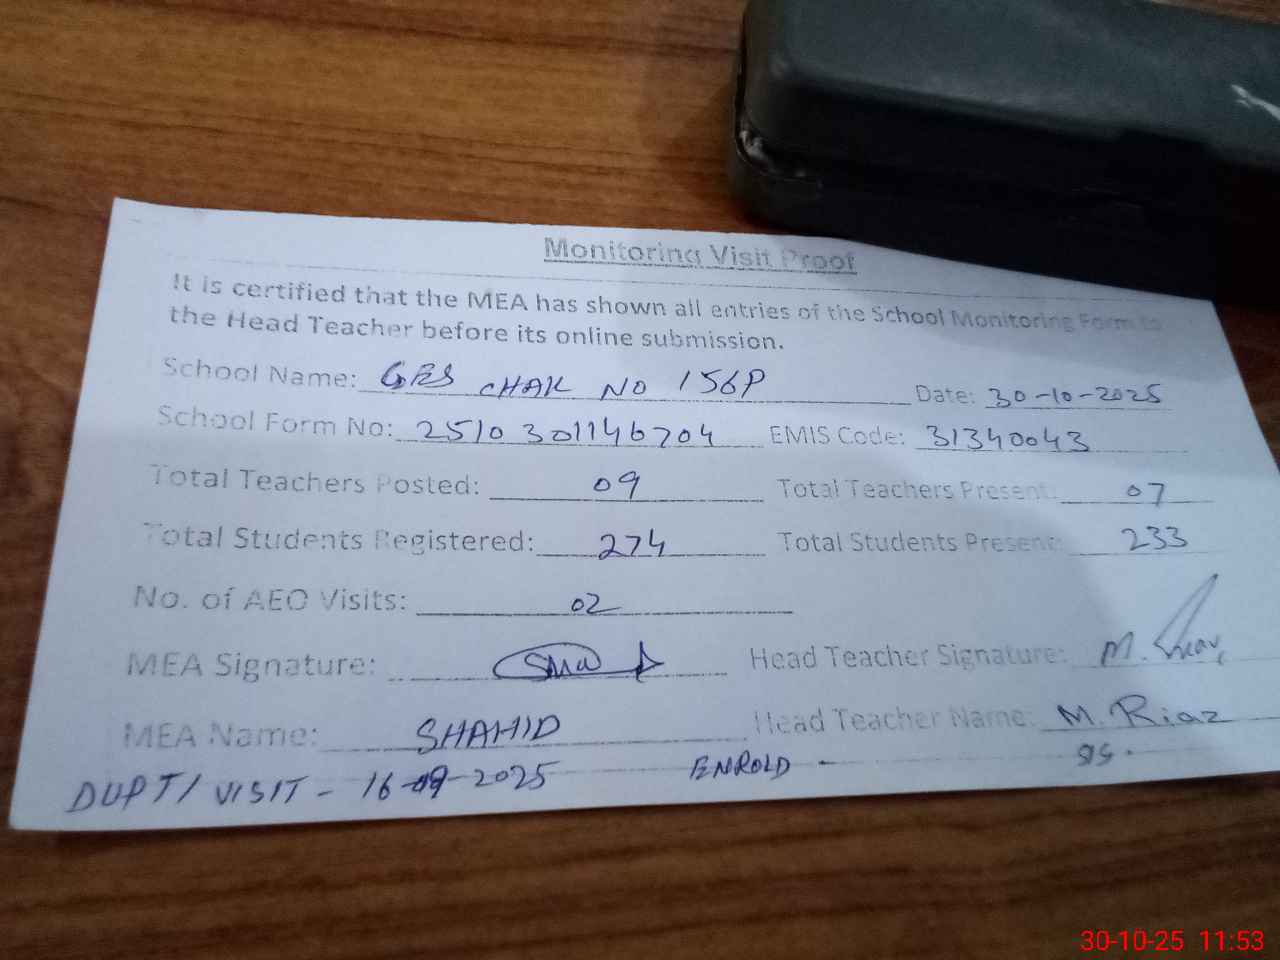 Monitoring Visit Proof
It is certified that the MEA has shown all entries of the School Monitoring Form to
the Head Teacher before its online submission.
School Name: GES CHAK NO 156P Date: 30-10-2025
School Form No: 2510301146704 EMIS Code: 31340043
Total Teachers Posted: 09 Total Teachers Present: 07
Total Students Registered: 274 Total Students Present: 233
No. of AEO Visits: 02
MEA Signature: Head Teacher Signature: M.
MEA Name: SHAHID Head Teacher Name: M. Riaz
DUPT/ VISIT - 16-09-2025 ENROLD -
30-10-25 11:53